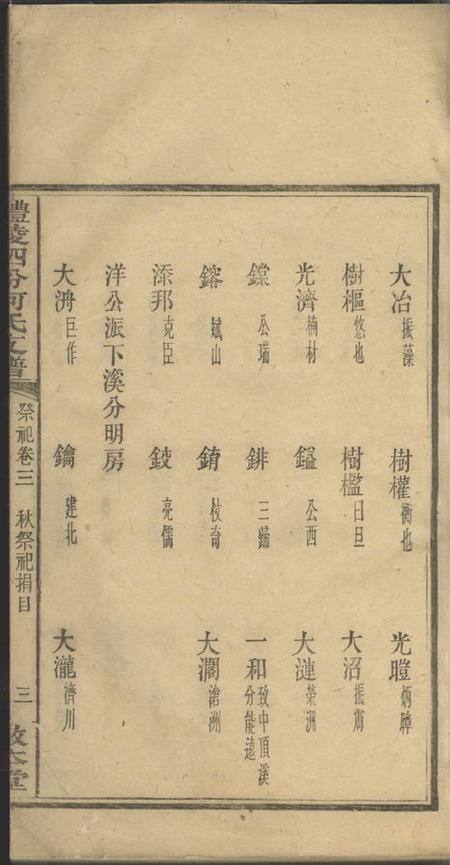 大冶 振藻 樹權 衡也 光暟 炳暲
樹樞 悠也 樹檻 日旦 大沼 振霄
光濟 楠材 鎰 公西 大漣 榮洲
鏿 公瑞 錐 三歸 一和 致中頂溪分能遠
鎔 斌山 錥 杖奇 大瀾 滄洲
添邦 克臣 鈘 亮儒
洋公派下溪分明房
大洀 巨作 鑰 建北 大瀧 濟川
醴陵四分何氏支譜 祭祀卷三 秋祭祀捐目 三 敦本堂